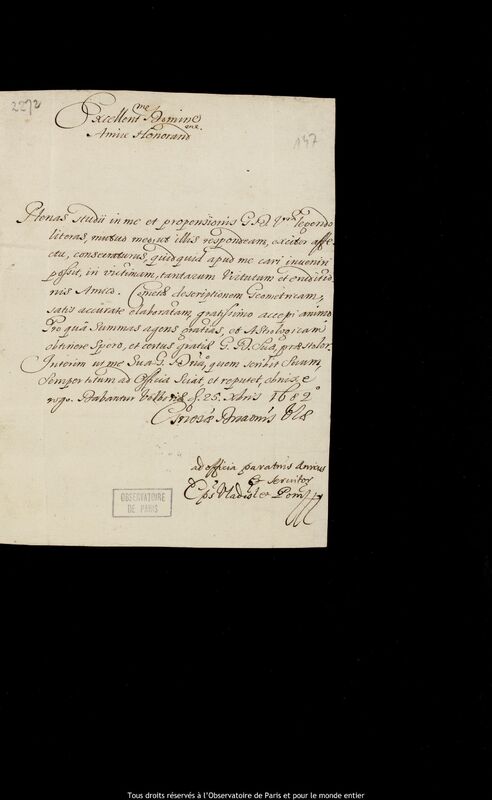 2272
147
Excellent.me Domine
Amice Honorand.me
Plenas studii in me et propensionis G. D. V.ræ legendo
literas, mutuo meque ut illis respondeam, excitor affe
ctu, consecraturus, quidquid apud me cari inveniri
possit, in victimam, tantarum Virtutum et eruditio
nis Amico. descriptionem Geometricam,
satis accurate elaboratam, gratissimo accepi animo
Pro qua Summas agens gratias, et Astrologicam
obtinere Spero, et certus gratiæ G. D. Suæ, præstolor.
Interim ut me Sua G. D. quem scribit Suum,
Semper titum ad Officia Sciat, et reputet, obnixe
rogo. Dabantur d. 25. Xbris 1682
ad officia paratus Amicus
et servitor
Eps Vladisl et Pom
OBSERVATOIRE
DE PARIS
Tous droits réservés à l'Observatoire de Paris et pour le monde entier